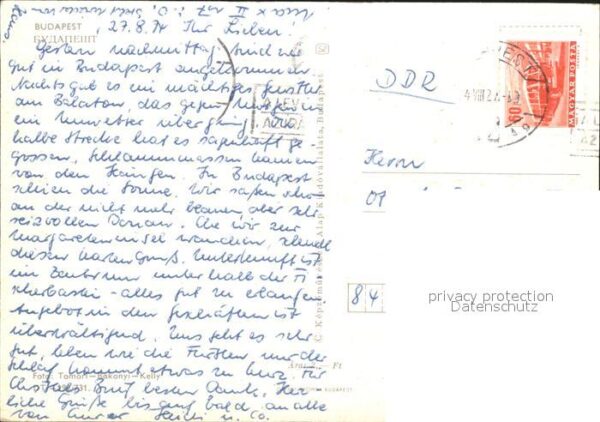 BUDAPEST
БУДАПЕШТ
27.8.74 Ihr Lieben!
Gestern nachmittag sind wir
gut in Budapest angekommen.
Nachts gab es ein mächtiges Gewitter
am Balaton, das gegen Morgen in
ein Unwetter überging.
halbe Strecke hat es sagenhaft ge
gossen, Schlammmassen kamen
von den Hängen. In Budapest
schien die Sonne. Wir saßen schon
an der nicht mehr blauen aber sehr
reizvollen Donau. Ehe wir zur
Margareteninsel wandern, schnell
diesen Kartengruß. Unterkunft ist
ein Zimmer unterhalb der
- alles gut zu erlangen.
Angebot in den Geschäften ist
überwältigend. Uns geht es sehr
gut, leben wie die Fürsten, nur der
Schlaf kommt etwas zu kurz. Für
Brief besten Dank. Herz
liche Grüße bis bald, an alle
von Eurer Heidi u. Co.
Foto: Tomori-Bakonyi-Kelly
731.
© Képzőművészeti Alap Kiadóvállalata, Budapest
Ára: Ft
BUDAPEST
DDR
Herrn
MAGYAR POSTA
60
84
privacy protection
Datenschutz